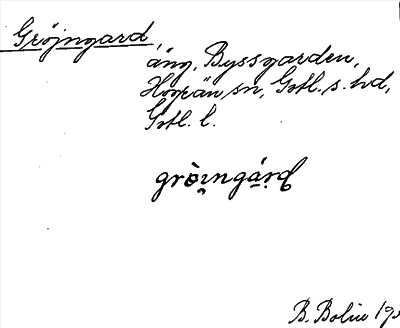 Gröjngard,
äng, Byssgarden,
Hogrän sn, Gotl. s. hd,
Gotl. l.
gròi̯ngá̱rḍ
B. Bolin